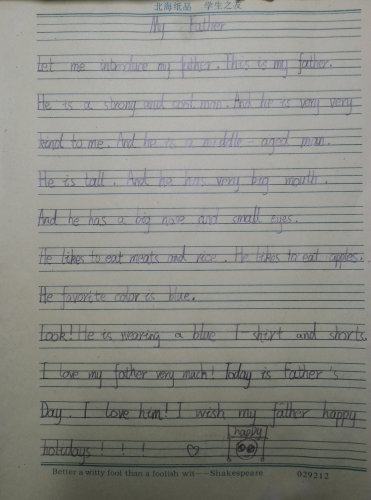 北海纸品 学生之友
My Father
Let me introduce my father. This is my father.
He is a strong and cool man. And he is very very
kind to me. And he is a middle-aged man.
He is tall. And he has very big mouth.
And he has a big nose and small eyes.
He likes to eat meats and rice. He likes to eat apples.
He favorite color is blue.
Look! He is wearing a blue T-shirt and shorts.
I love my father very much! Today is Father's
Day. I love him! I wish my father happy
holidays! ! !
happy
Better a witty fool than a foolish wit——Shakespeare 029212